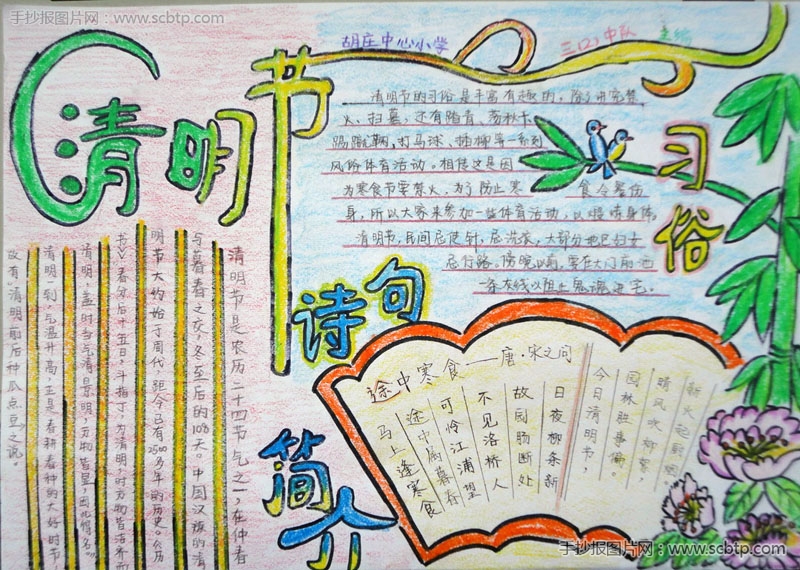 手抄报图片网 - www.scbtp.com
胡庄中心小学
三(2)中队
主编
清明节
清明节的习俗是丰富有趣的,除了讲究禁
火、扫墓,还有踏青、荡秋千、
踢蹴鞠,打马球、插柳等一系列
风俗体育活动。相传这是因
为寒食节要禁火,为了防止寒 食令餐伤
身,所以大家来参加一些体育活动,以锻炼身体。
清明节,民间忌使针,忌洗衣,大部分地区妇女
忌行路。傍晚以前,要在大门前洒
一条灰线以阻止鬼魂进宅。
习俗
清明节是农历二十四节气之一,在仲春
与暮春之交,冬至后的108天。中国汉族的清
明节大约始于周代,距今已有2500多年的历史。《历
书》:春分后十五日,斗指丁,为清明,时万物皆洁齐而
清明,盖时当气清景明,万物皆显,因此得名。"
清明一到,气温升高,正是春耕春种的大好时节
故有"清明前后种瓜点豆"之说。
诗句
简介
途中寒食——唐·宋之问
马上逢寒食
途中属暮春
可怜江浦望
不见洛桥人
故园肠断处
日夜柳条新
今日清明节,
园林胜事偏。
晴风吹柳絮,
新火起厨烟。
手抄报图片网:www.scbtp.com